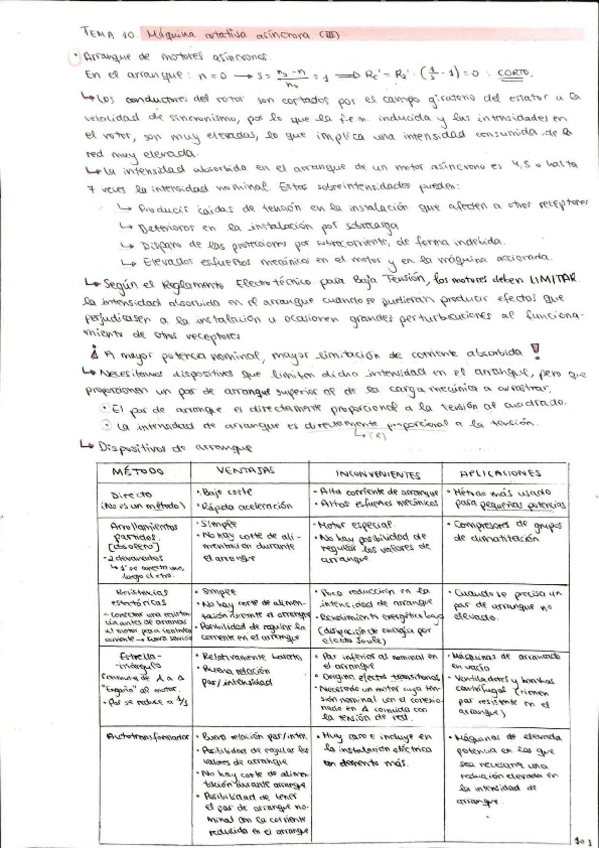 TEMA 10. Máquina rotativa asíncrona (III)
Arranque de motores asíncronos.
En el arranque: n = 0 → s = (ns - n)/ns = 1 ⇒ Rc' = R2' · (1/s - 1) = 0 : CORTO.
↳ Los conductores del rotor son cortados por el campo giratorio del estator a la
velocidad de sincronismo, por lo que la f.e.m. inducida y las intensidades en
el rotor, son muy elevadas, lo que implica una intensidad consumida de la
red muy elevada.
↳ La intensidad absorbida en el arranque de un motor asíncrono es 4,5 o hasta
7 veces la intensidad nominal. Estas sobreintensidades pueden:
↳ Producir caídas de tensión en la instalación que afecten a otros receptores
↳ Deterioros en la instalación por sobrecarga
↳ Disparo de las protecciones por sobrecorriente, de forma indebida.
↳ Elevados esfuerzos mecánicos en el motor y en la máquina accionada.
↳ Según el Reglamento Electrotécnico para Baja Tensión, los motores deben LIMITAR
la intensidad absorbida en el arranque cuando se pudieran producir efectos que
perjudicasen a la instalación u ocasionen grandes perturbaciones al funciona-
miento de otros receptores
¡ A mayor potencia nominal, mayor limitación de corriente absorbida !
↳ Necesitamos dispositivos que limiten dicha intensidad en el arranque, pero que
proporcionen un par de arranque superior al de la carga mecánica a arrastrar.
El par de arranque es directamente proporcional a la tensión al cuadrado.
La intensidad de arranque es directamente proporcional a la tensión.
↳ Dispositivos de arranque
MÉTODO VENTAJAS INCONVENIENTES APLICACIONES
Directo
(No es un método)
• Bajo coste
• Rápida aceleración
• Alta corriente de arranque
• Altos esfuerzos mecánicos
• Método más usado
para pequeñas potencias
Arrollamientos
partidos.
[obsoleto]
- 2 devanados
↳ 1º se conecta uno,
luego el otro.
• Simple
• No hay corte de ali-
mentación durante
el arranque
• Motor especial.
• No hay posibilidad de
regular los valores de
arranque
• Compresores de grupos
de climatización
Resistencias
estatóricas
• Simple
• No hay corte de alimen-
tación durante el arranque
• Posibilidad de regular la
corriente en el arranque
• Poca reducción en la
intensidad de arranque
• Rendimiento energético bajo
(disipación de energía por
efecto Joule)
• Cuando se precisa un
par de arranque no
elevado.
Estrella-
triángulo
Conmuta de λ a Δ
"Engaño" al motor.
• Par se reduce a 1/3
• Relativamente barato
• Buena relación
par/intensidad
• Par inferior al nominal en
el arranque
• Origina efectos transitorios
• Necesario un motor cuya ten-
sión nominal con el conexio-
nado en Δ coincida con
la tensión de red.
• Máquinas de arrancado
en vacío
• Ventiladores y bombas
centrífugas (tienen
par resistente en el
arranque)
Autotransformador
• Buena relación par/inten.
• Posibilidad de regular los
valores de arranque
• No hay corte de alimen-
tación durante arranque
• Posibilidad de tener
el par de arranque no-
minal con la corriente
reducida en el arranque
• Muy caro e incluye en
la instalación eléctrica
un elemento más.
• Máquinas de elevada
potencia en las que
sea necesaria una
reducción elevada en
la intensidad de
arranque